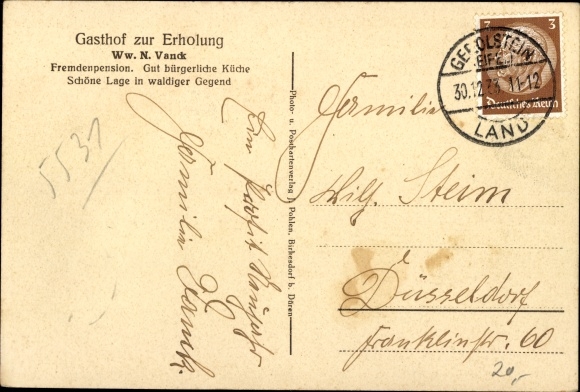 Gasthof zur Erholung
Ww. N. Vanck
Fremdenpension. Gut bürgerliche Küche
Schöne Lage in waldiger Gegend
5531
Ein Prosit Neujahr
Familie Vanck.
Photo- u. Postkartenverlag J. Pohlen, Birkesdorf b. Düren
3 3
Deutsches Reich
GEROLSTEIN
(EIFEL)
11-12
LAND
Familie
Wilh. Steim
Düsseldorf
Franklinstr. 60
20,-